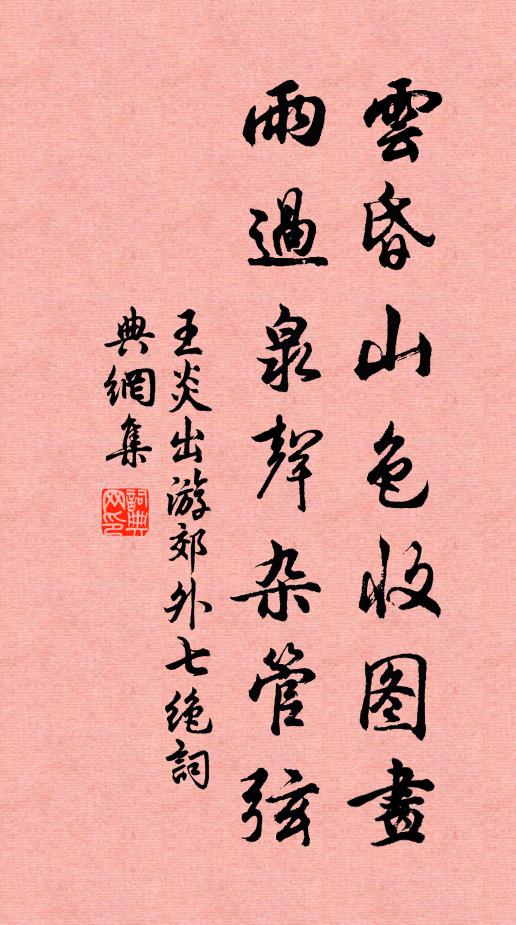 雲昏山色收图畫
雨過泉聲杂管弦
王炎出游郊外七绝詞
典網集
詞典網印